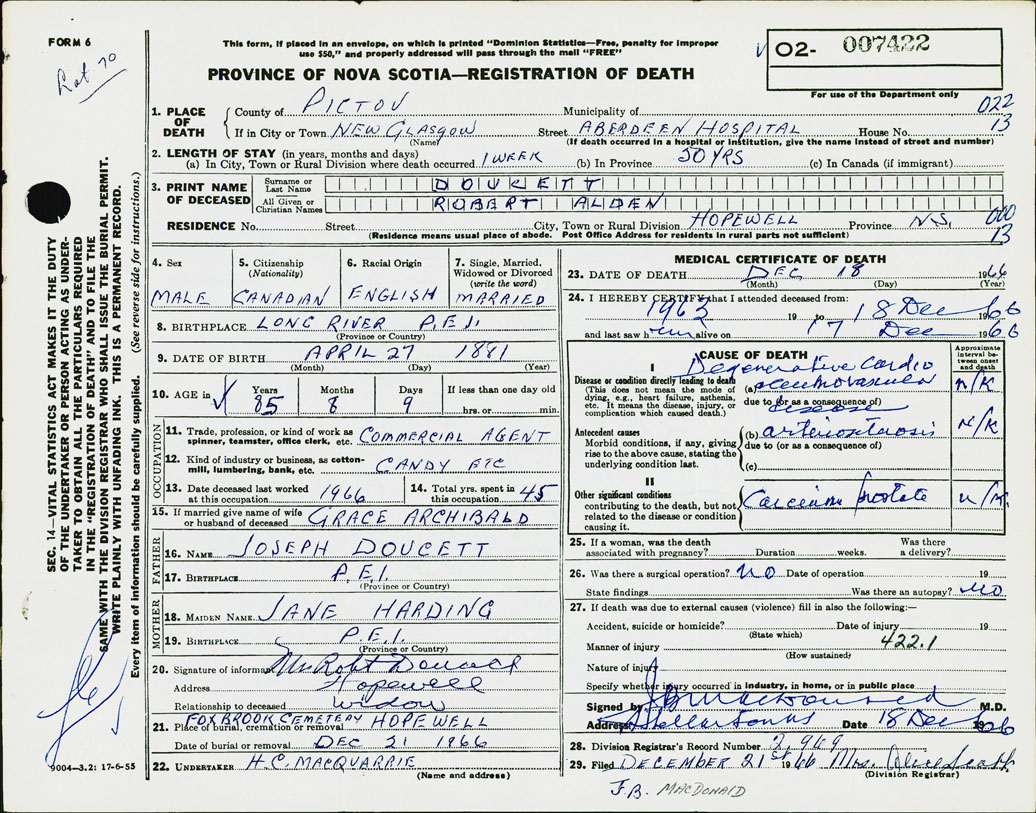 FORM 6
Lot 70
This form, if placed in an envelope, on which is printed "Dominion Statistics—Free, penalty for improper
use $50," and properly addressed will pass through the mail "FREE"
PROVINCE OF NOVA SCOTIA—REGISTRATION OF DEATH
02- 007422
For use of the Department only
1. PLACE OF DEATH
County of PICTOU Municipality of 022
If in City or Town NEW GLASGOW Street ABERDEEN HOSPITAL House No. 13
(Name) (If death occurred in a hospital or institution, give the name instead of street and number)
2. LENGTH OF STAY (in years, months and days)
(a) In City, Town or Rural Division where death occurred 1 WEEK (b) In Province 50 YRS (c) In Canada (if immigrant)
3. PRINT NAME OF DECEASED
Surname or Last Name DOUCETT
All Given or Christian Names ROBERT ALDEN
RESIDENCE No. Street City, Town or Rural Division HOPEWELL Province N.S. 000
(Residence means usual place of abode. Post Office Address for residents in rural parts not sufficient) 13
4. Sex MALE
5. Citizenship (Nationality) CANADIAN
6. Racial Origin ENGLISH
7. Single, Married, Widowed or Divorced (write the word) MARRIED
8. BIRTHPLACE LONG RIVER P.E.I.
(Province or Country)
9. DATE OF BIRTH APRIL 27 1881
(Month) (Day) (Year)
10. AGE in Years 85 Months 8 Days 9 If less than one day old hrs. or min.
OCCUPATION
11. Trade, profession, or kind of work as spinner, teamster, office clerk, etc. COMMERCIAL AGENT
12. Kind of industry or business, as cotton-mill, lumbering, bank, etc. CANDY ETC
13. Date deceased last worked at this occupation 1966
14. Total yrs. spent in this occupation 45
15. If married give name of wife or husband of deceased GRACE ARCHIBALD
FATHER
16. NAME JOSEPH DOUCETT
17. BIRTHPLACE P.E.I.
(Province or Country)
MOTHER
18. MAIDEN NAME JANE HARDING
19. BIRTHPLACE P.E.I.
(Province or Country)
20. Signature of informant Mrs Robt Doucett
Address Hopewell
Relationship to deceased widow
21. Place of burial, cremation or removal FOXBROOK CEMETERY HOPEWELL
Date of burial or removal DEC 21 1966
22. UNDERTAKER H.C. MACQUARRIE
(Name and address)
MEDICAL CERTIFICATE OF DEATH
23. DATE OF DEATH DEC 18 1966
(Month) (Day) (Year)
24. I HEREBY CERTIFY that I attended deceased from:
1963 19 to 18 Dec 66
and last saw him alive on 17 Dec 1966
CAUSE OF DEATH
Approximate interval between onset and death
I
Disease or condition directly leading to death
(This does not mean the mode of dying, e.g., heart failure, asthenia, etc. It means the disease, injury, or complication which caused death.)
Degenerative Cardio
(a) N/K
due to (or as a consequence of)
disease
Antecedent causes
Morbid conditions, if any, giving rise to the above cause, stating the underlying condition last.
(b) arteriosclerosis N/K
due to (or as a consequence of)
(c)
II
Other significant conditions
contributing to the death, but not related to the disease or condition causing it.
Carcinoma prostate N/K
25. If a woman, was the death associated with pregnancy? Duration weeks. Was there a delivery?
26. Was there a surgical operation? NO Date of operation 19
State findings Was there an autopsy? NO
27. If death was due to external causes (violence) fill in also the following:—
Accident, suicide or homicide? Date of injury 19
(State which)
Manner of injury 422.1
(How sustained)
Nature of injury
Specify whether injury occurred in industry, in home, or in public place
Signed by JB MacDonald M.D.
Address Stellarton NS Date 18 Dec 1966
28. Division Registrar's Record Number 2,969
29. Filed DECEMBER 21st 1966 Mrs. Alice Scott
(Division Registrar)
J.B. MACDONALD
SEC. 14—VITAL STATISTICS ACT MAKES IT THE DUTY
OF THE UNDERTAKER OR PERSON ACTING AS UNDER-
TAKER TO OBTAIN ALL THE PARTICULARS REQUIRED
IN THE "REGISTRATION OF DEATH" AND TO FILE THE
SAME WITH THE DIVISION REGISTRAR WHO SHALL ISSUE THE BURIAL PERMIT.
WRITE PLAINLY WITH UNFADING INK. THIS IS A PERMANENT RECORD.
Every item of information should be carefully supplied. (See reverse side for instructions.)
9004—3.2: 17-6-55